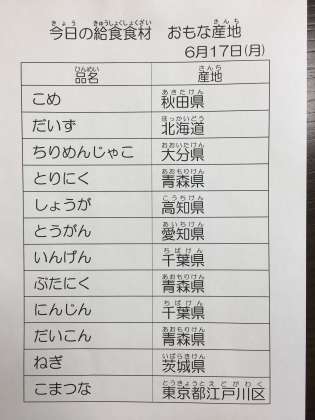 今日の給食食材　おもな産地
6月17日(月)
品名　産地
こめ　秋田県
だいず　北海道
ちりめんじゃこ　大分県
とりにく　青森県
しょうが　高知県
とうがん　愛知県
いんげん　千葉県
ぶたにく　青森県
にんじん　千葉県
だいこん　青森県
ねぎ　茨城県
こまつな　東京都江戸川区